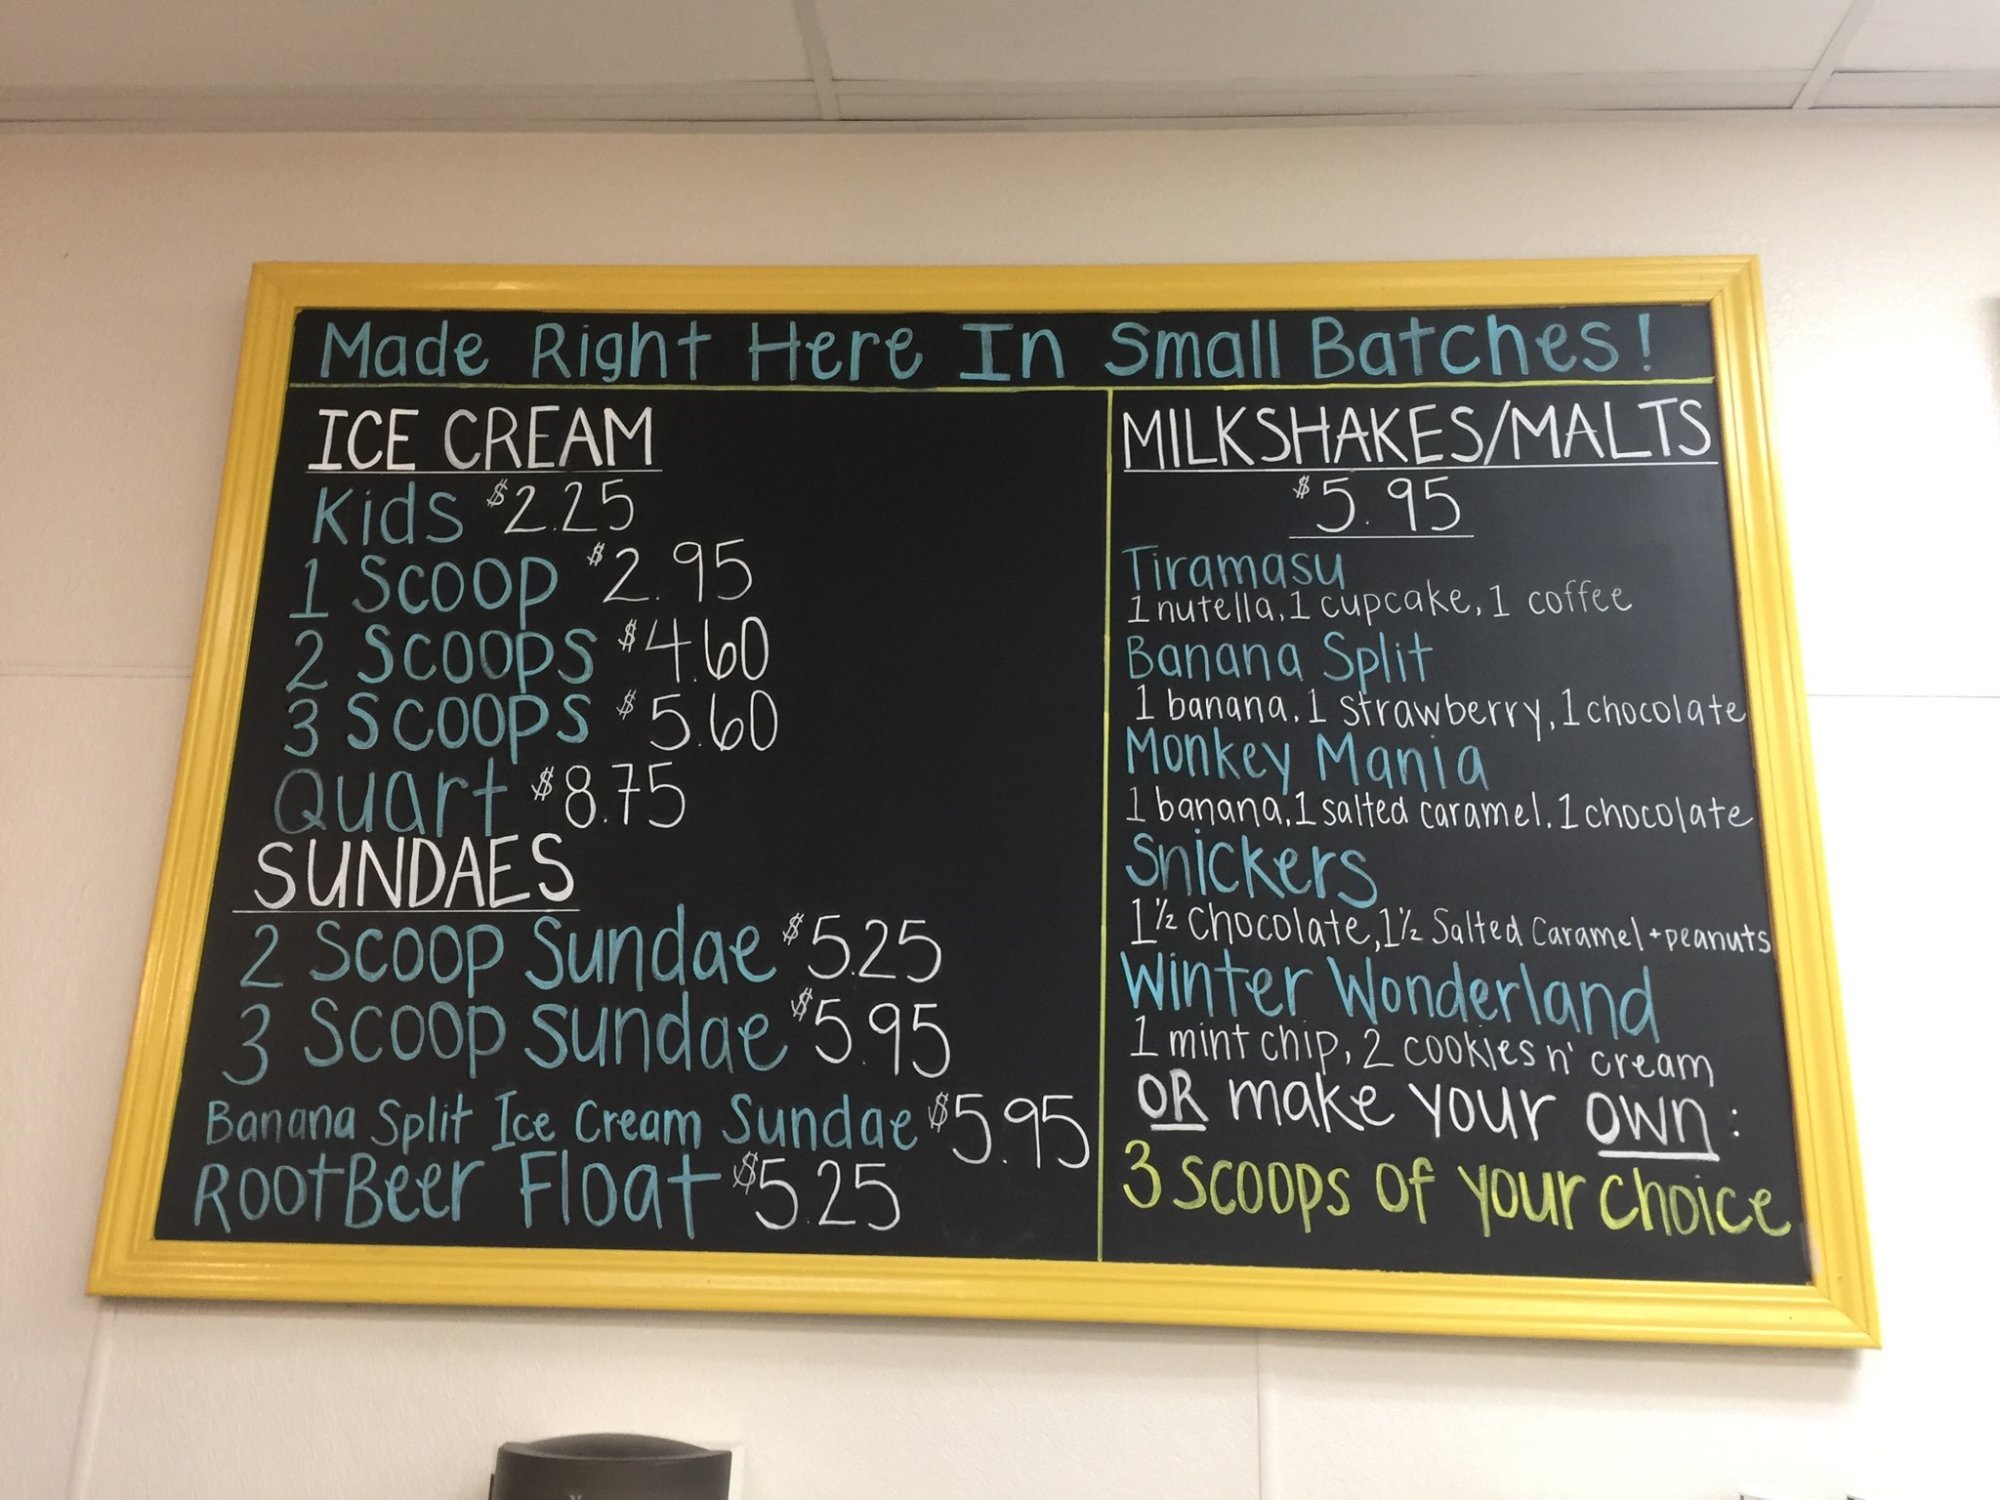 Made Right Here In Small Batches!
ICE CREAM
Kids $2.25
1 Scoop $2.95
2 Scoops $4.60
3 Scoops $5.60
Quart $8.75
SUNDAES
2 Scoop Sundae $5.25
3 Scoop Sundae $5.95
Banana Split Ice Cream Sundae $5.95
RootBeer Float $5.25
MILKSHAKES/MALTS
$5.95
Tiramasu
1 nutella, 1 cupcake, 1 coffee
Banana Split
1 banana, 1 strawberry, 1 chocolate
Monkey Mania
1 banana, 1 salted caramel, 1 chocolate
Snickers
1½ Chocolate, 1½ Salted Caramel + peanuts
Winter Wonderland
1 mint chip, 2 cookies n' cream
OR make your own:
3 scoops of your choice